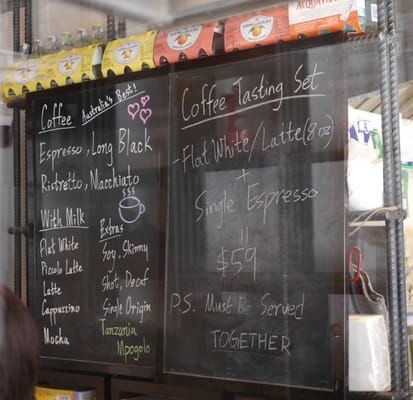 Coffee
Australia's Best!
Espresso, Long Black
Ristretto, Macchiato
With Milk
Flat White
Piccolo Latte
Latte
Cappuccino
Mocha
Extras
Soy, Skinny
Shot, Decaf
Single Origin
Tanzania
Mpogolo
Coffee Tasting Set
-Flat White/Latte(8oz)
+
Single Espresso
=
$59
P.S. Must Be Served
TOGETHER